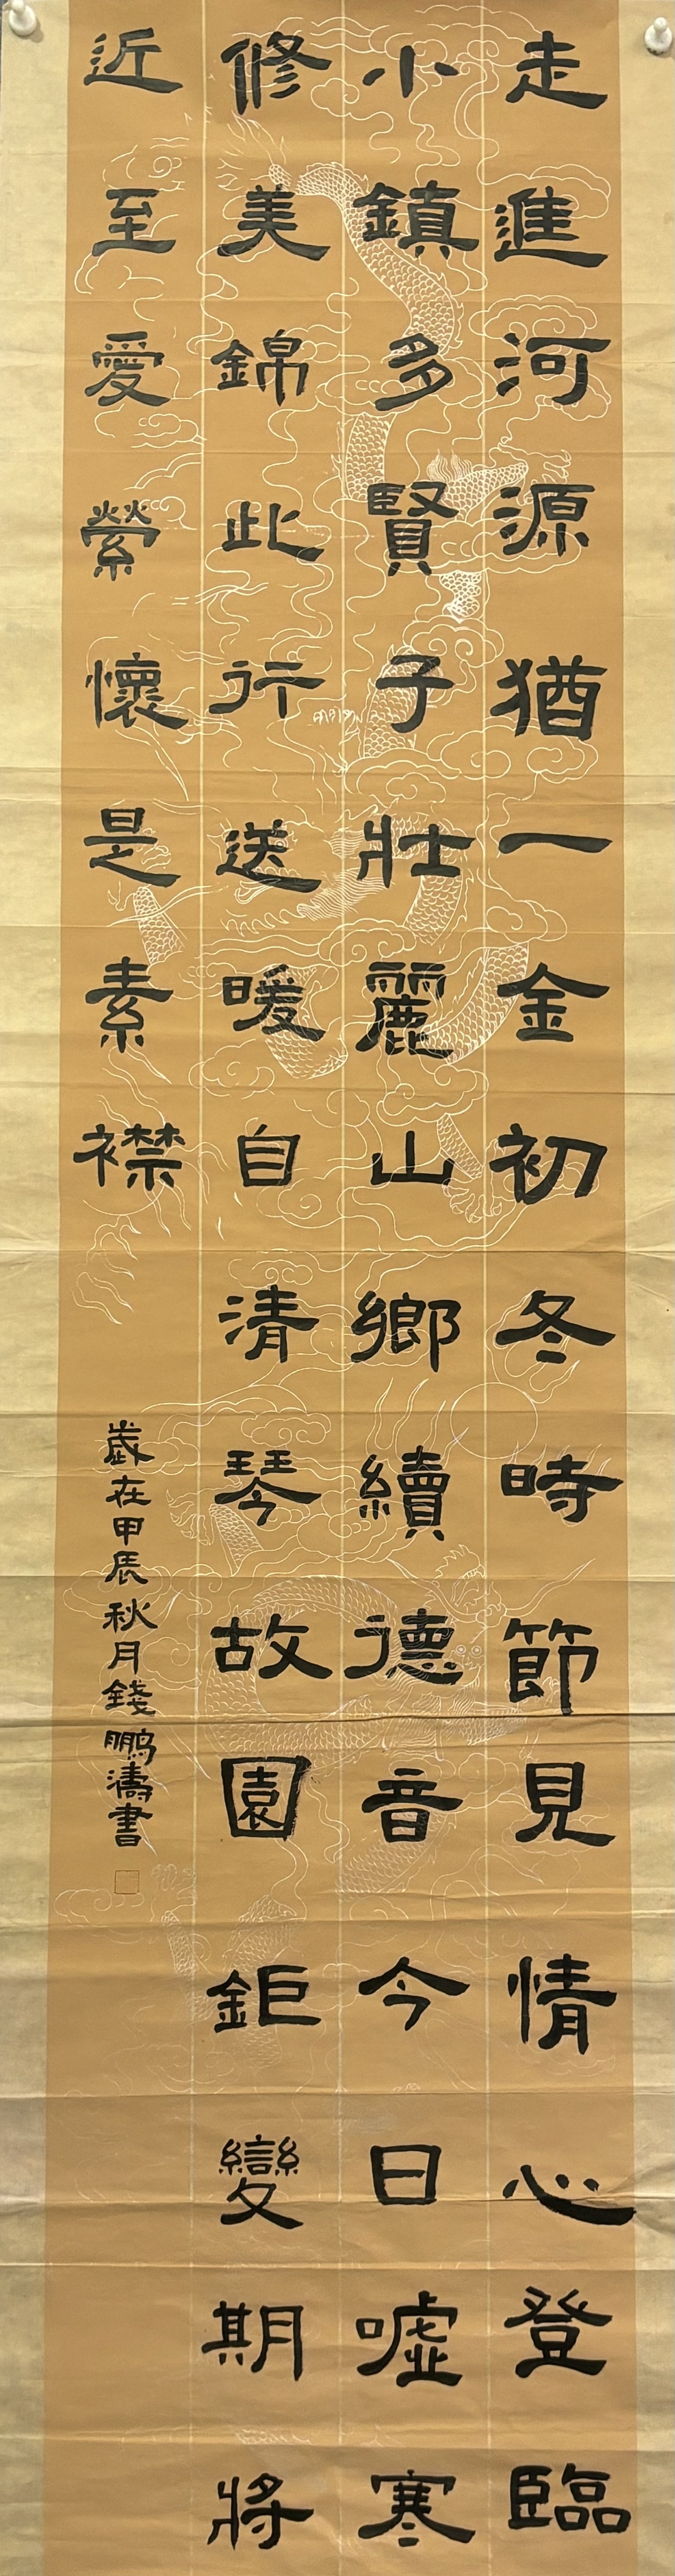 走進河源猶一金初冬時節見情心登臨
小鎮多賢子壯麗山鄉續德音今日噓寒
修美錦此行送暖自清琴故園鉅變期將
近至愛縈懷是素襟
歲在甲辰秋月錢鵬濤書